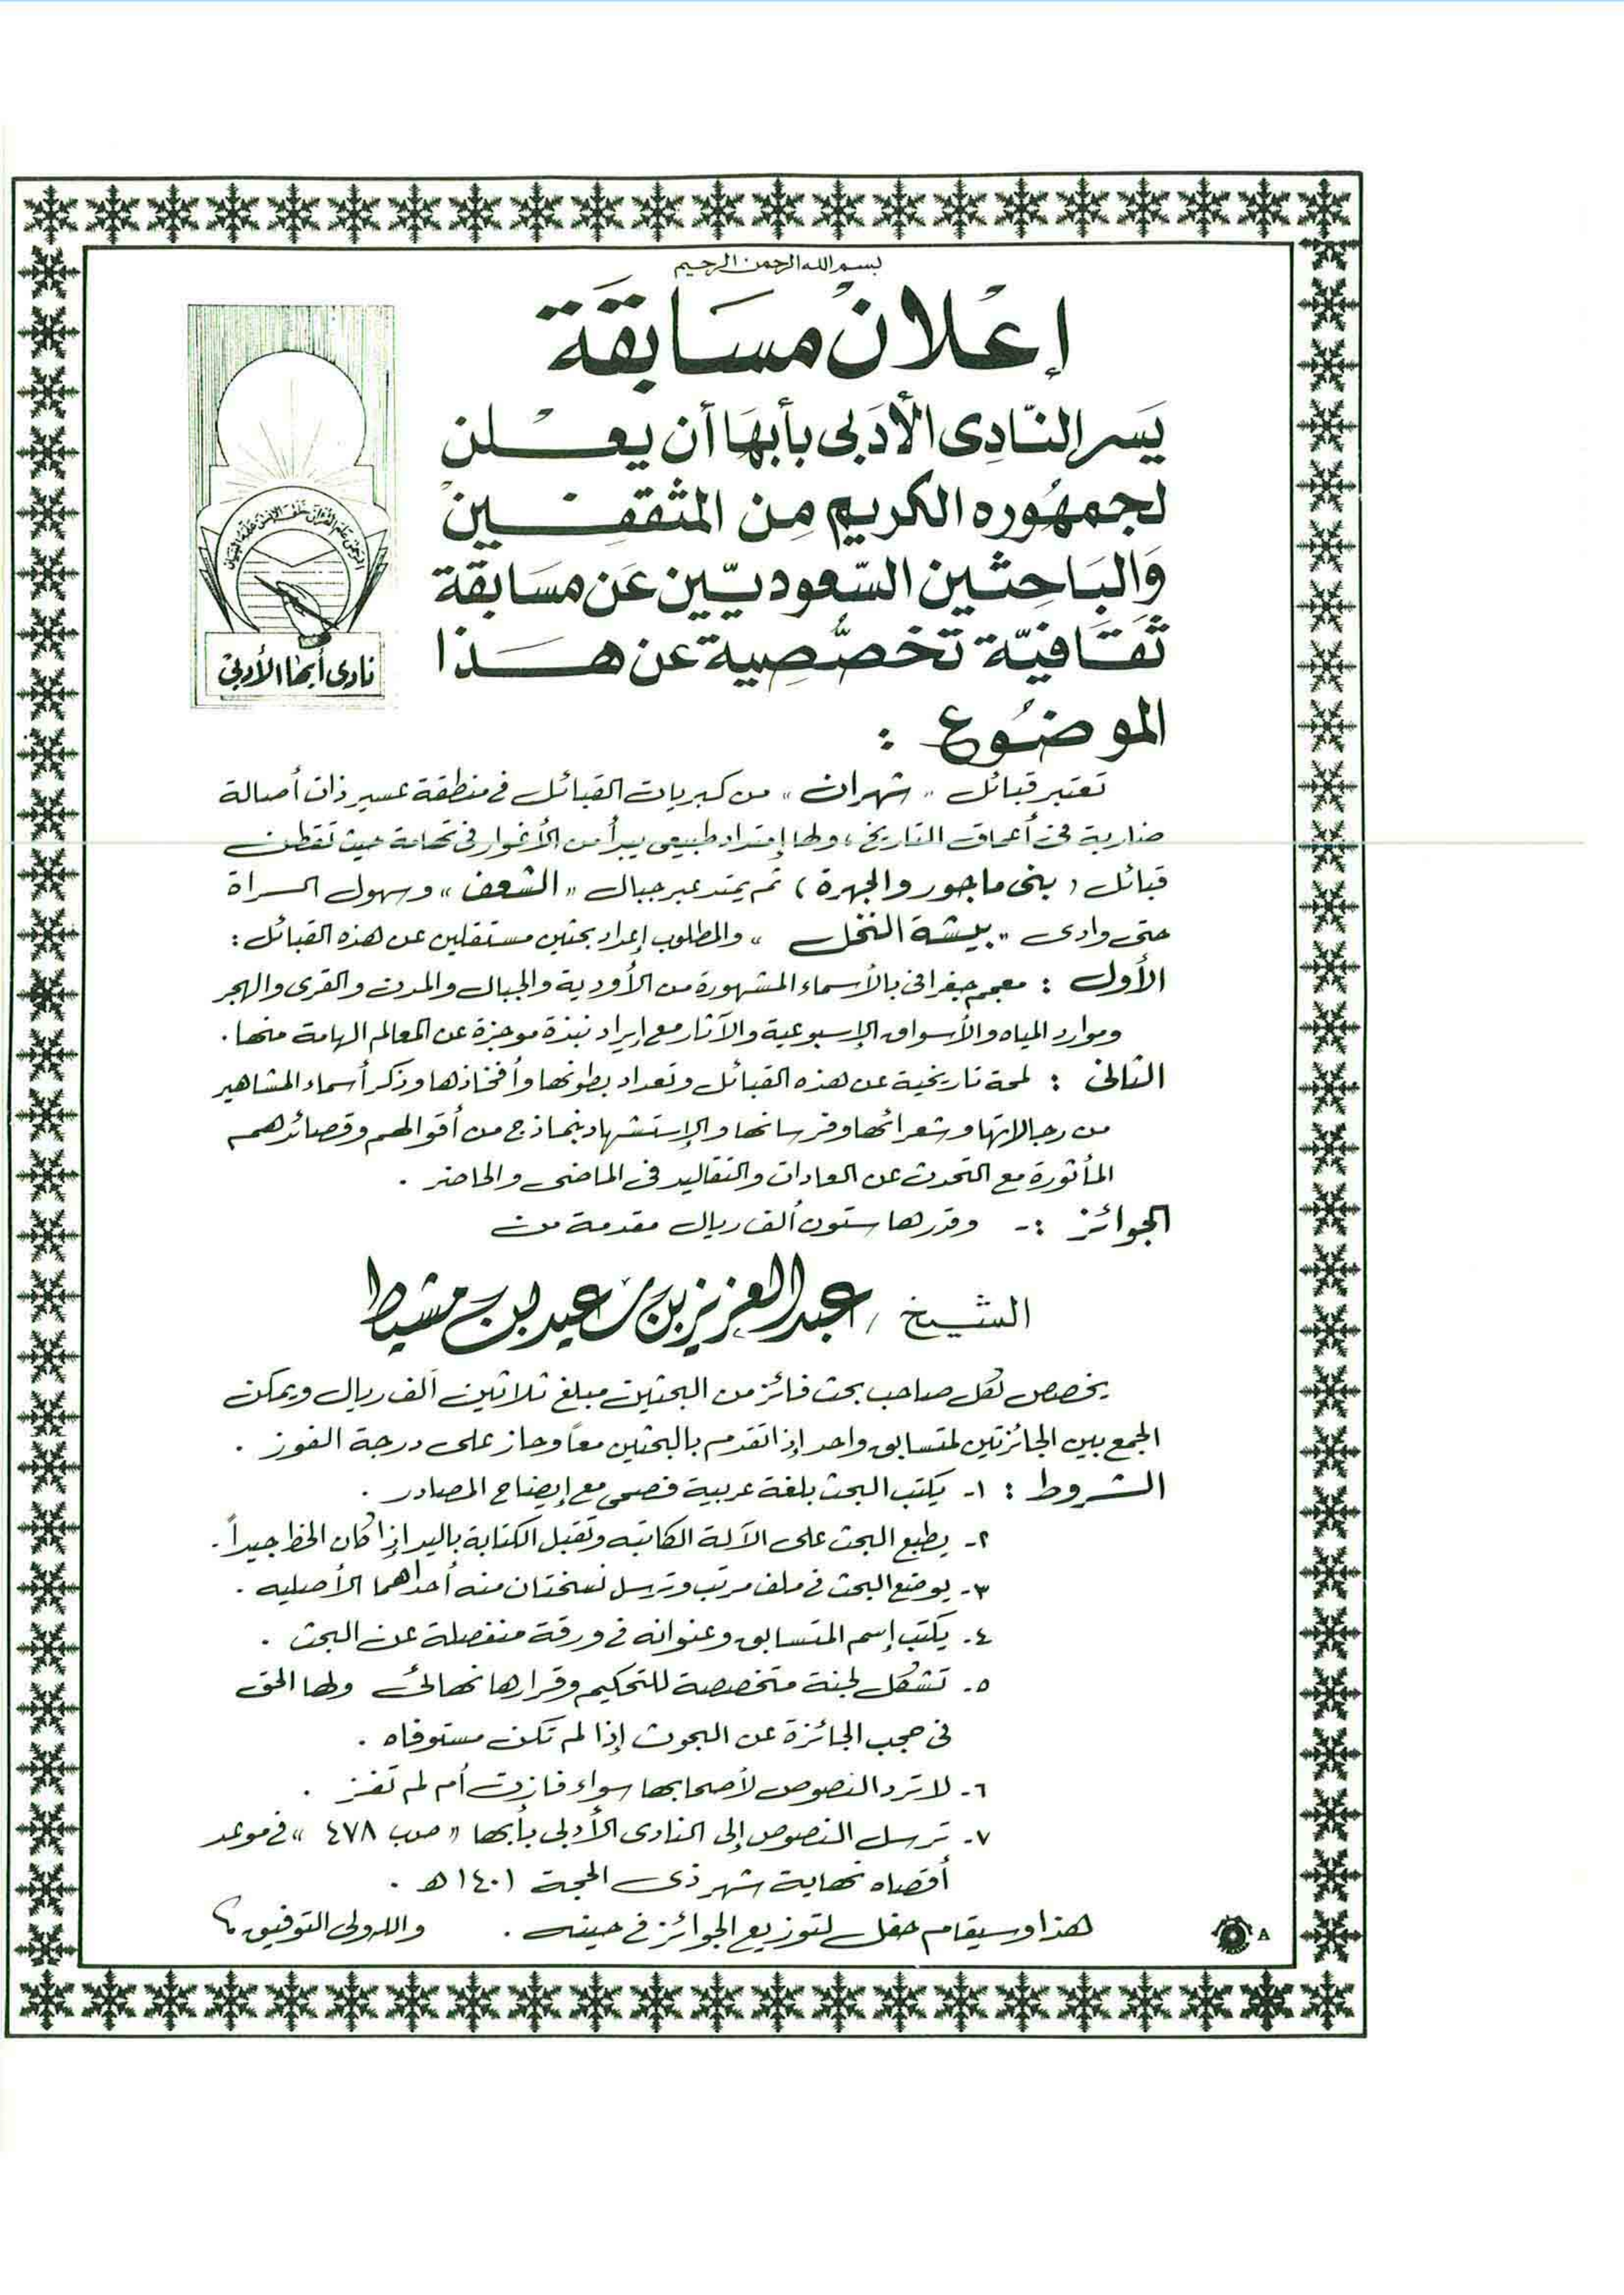 بسم الله الرحمن الرحيم
إعْلانْ مسَابقَة
يَسر النّادِى الأدَبى بأبهَا أن يعْلن
لجمهُوره الكريم مِن المثقفِينْ
وَالبَاحِثين السّعوديّين عَن مسَابقَة
ثقَافيّة تخصُّصِية عن هَذا
الموضُوع :
نادى أبها الأدبى
الرحمن علم القرآن خلق الإنسان علمه البيان
تعتبر قبائل « شهران » من كبريات القبائل فى منطقة عسير ذات أصالة
ضاربة فى أعماق التاريخ ، ولها إمتداد طبيعى يبدأ من الأغوار فى تهامة حيث تقطن
قبائل ( بنى ماجور والجهرة ) ثم يمتد عبر جبال « الشعف » وسهول السراة
حتى وادى « بيشة النخل » والمطلوب إعداد بحثين مستقلين عن هذه القبائل :
الأول : معجم جغرافى بالأسماء المشهورة من الأودية والجبال والمدن والقرى والهجر
وموارد المياه والأسواق الإسبوعية والآثار مع إيراد نبذة موجزة عن المعالم الهامة منها .
الثانى : لمحة تاريخية عن هذه القبائل وتعداد بطونها وأفخاذها وذكر أسماء المشاهير
من رجالاتها وشعرائها وفرسانها والإستشهاد بنماذج من أقوالهم وقصائدهم
المأثورة مع التحدث عن العادات والتقاليد فى الماضى والحاضر .
الجوائز :- وقدرها ستون ألف ريال مقدمة من
الشيخ / عبدالعزيز بن سعيد بن مشيط
يخصص لكل صاحب بحث فائز من البحثين مبلغ ثلاثين ألف ريال ويمكن
الجمع بين الجائزتين لمتسابق واحد إذا تقدم بالبحثين معاً وحاز على درجة الفوز .
الشروط : ١- يكتب البحث بلغة عربية فصحى مع إيضاح المصادر .
٢- يطبع البحث على الآلة الكاتبه وتقبل الكتابة باليد إذا كان الخط جيداً .
٣- يوضع البحث فى ملف مرتب وترسل نسختان منه أحداهما الأصليه .
٤- يكتب إسم المتسابق وعنوانه فى ورقة منفصلة عن البحث .
٥- تشكل لجنة متخصصة للتحكيم وقرارها نهائى ولها الحق
فى حجب الجائزة عن البحوث إذا لم تكن مستوفاه .
٦- لا ترد النصوص لأصحابها سواء فازت أم لم تفز .
٧- ترسل النصوص إلى النادى الأدبى بأبها « ص.ب ٤٧٨ » فى موعد
أقصاه نهاية شهر ذى الحجة ١٤٠١ هـ .
هذا وسيقام حفل لتوزيع الجوائز فى حينه . والله ولى التوفيق
A